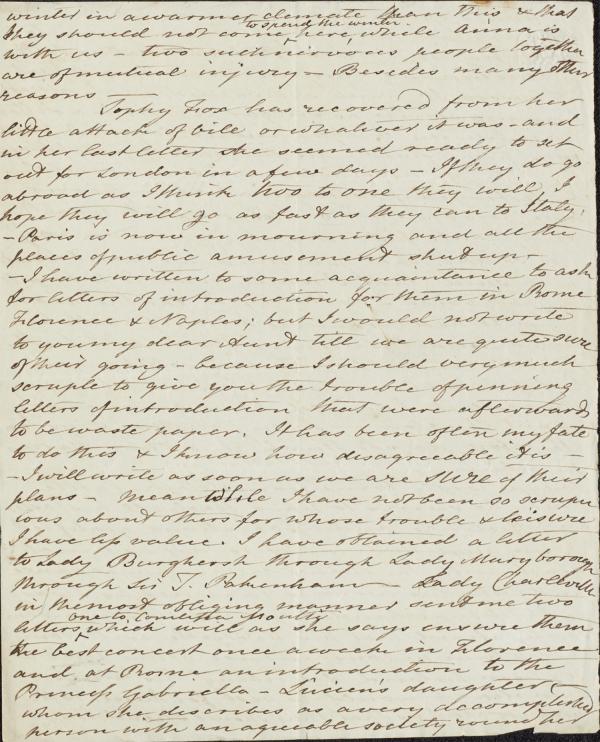 winter in a warmer climate than this & that
to spend the winter.
they should not come here while Anna is
with us – two such nervous people together
are of mutual injury – Besides many other
reasons
Sophy Fox has recovered from her
little attack of bile or whatever it was – and
in her last letter she seemed ready to set
out for London in a few days – If they do go
abroad as I think two to one they will, I
hope they will go as fast as they can to Italy.
– Paris is now in mourning and all the
places of public amusement shut up –
– I have written to some acquaintance to ask
for letters of introduction for them in Rome
Florence & Naples; but I would not write
to you my dear Aunt till we are quite sure
of their going – because I should very much
scruple to give you the trouble of penning
letters of introduction that were afterwards
to be waste paper. It has been often my fate
to do this & I know how disagreeable it is –
– I will write as soon as we are sure of their
plans – Meanwhile I have not been so scrupu
lous about others for whose trouble & leisure
I have less value. I have obtained a letter
to Lady Burghersh through Lady Maryborough
through Sir T. Pakenham – Lady Charleville
in the most obliging manner sent me two
one to
letters which will as she says ensure them
the best concert once a week in Florence
and at Rome an introduction to the
Princess Gabriella – Lucien's daughter
whom she describes as a very accomplished
person with an agreeable society round her